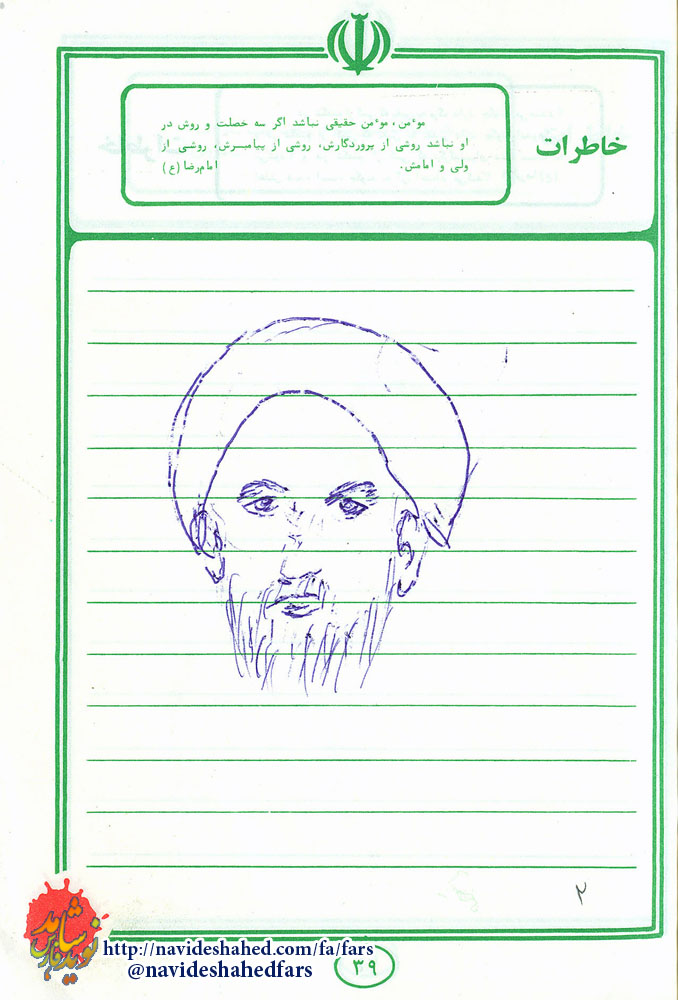 خاطرات
موٴمن، موٴمن حقیقی نباشد اگر سه خصلت و روش در
او نباشد روشی از پروردگارش، روشی از پیامبرش، روشی از
ولی و امامش. امام‌رضا (ع)
۲
نوید شاهد
فارس
http://navideshahed.com/fa/fars
@navideshahedfars
۳۹